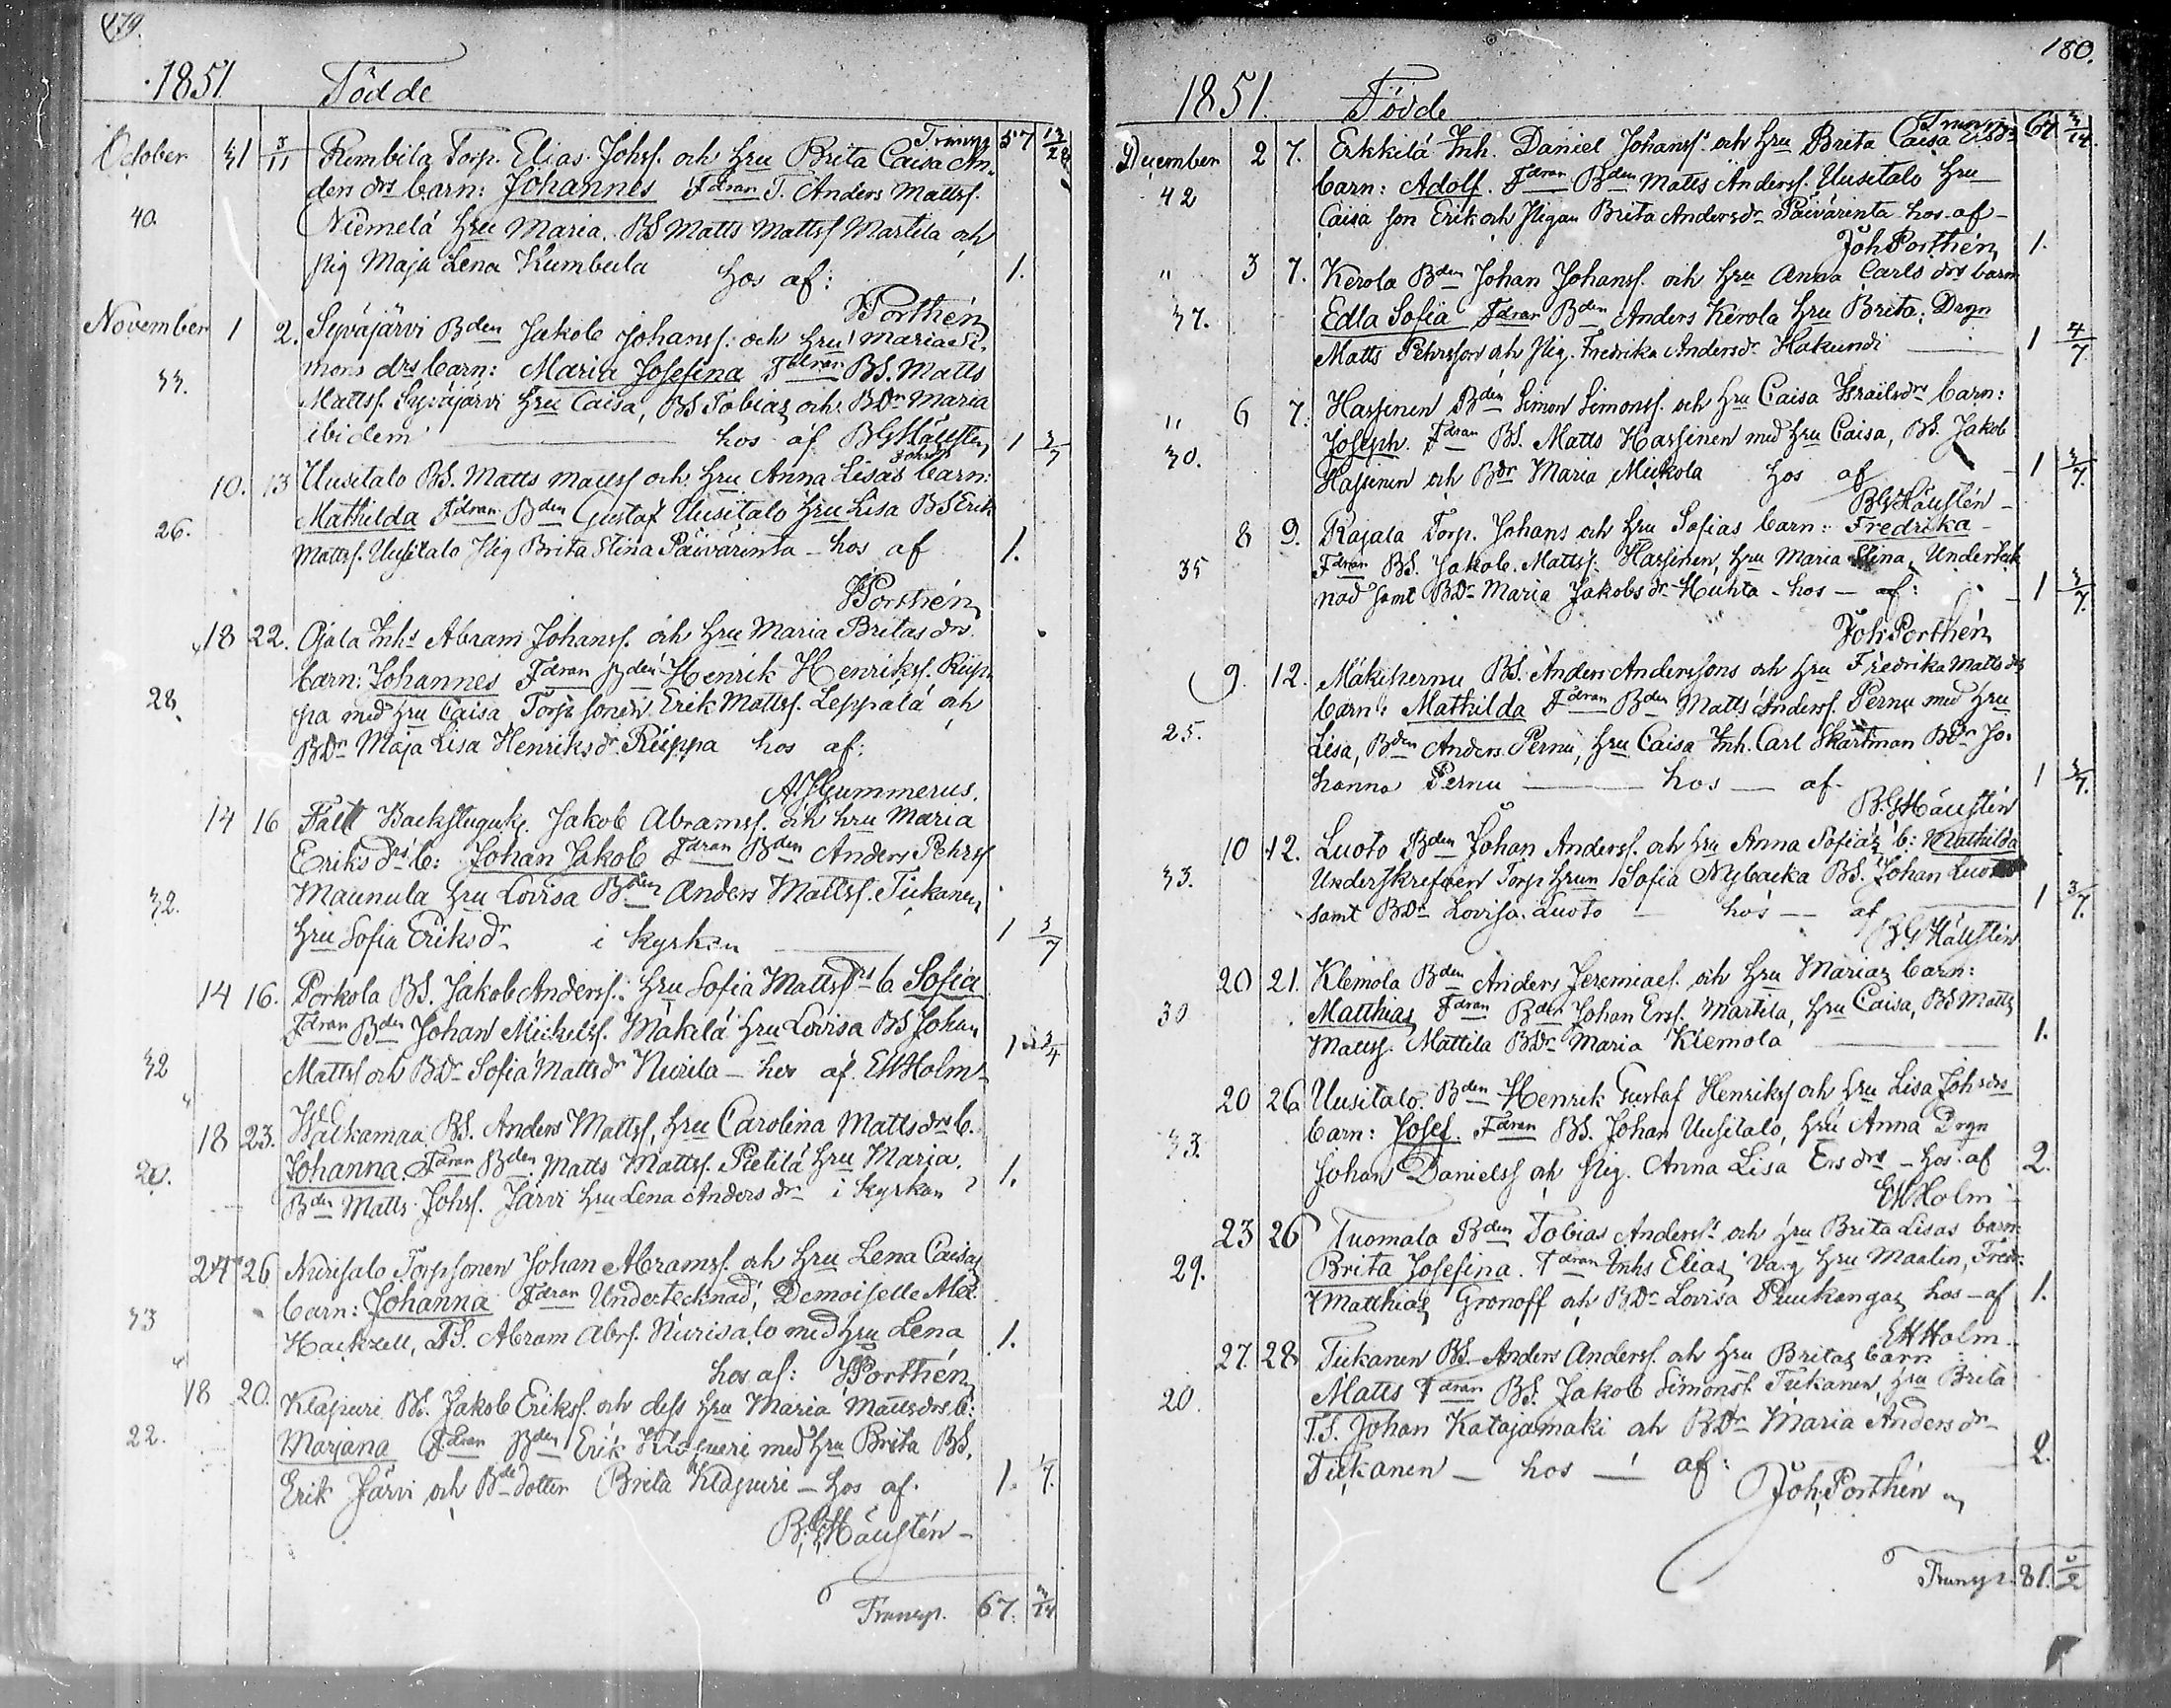 179.
1851. Födde
Transp. 57 13/28
October 31 3/11 Kumbila Torp. Elias Johsſ. och hru Brita Caisa An-
ders drs barn: Johannes Fdran T. Anders Mattsſ.
40. Niemelä hru Maria. BS Matts Mattsſ Martila och
pig Maja Lena Kumbula hos af: 1.
JPorthén
November 1 2. Syväjärvi Bden Jakob Johansſ. och hru Maria Si-
mons drs barn: Maria Josefina Fdran BS. Matts
33. Mattsſ. Syväjärvi hru Caisa, BS Tobias och BDr Maria
ibidem hos af BGHäusten 1 3/7
10. 13 Uusitalo BS. Matts Mattsſ och hru Anna Lisas barn:
Mathilda Fdran Bden Gustaf Uusitalo hru Lisa BS Erik
26. Mattsſ. Uusitalo Pig Brita Stina Päivärinta - hos af 1.
JPorthén
18 22. Ojala Inhs Abram Johansſ. och hru Maria Britas drs
barn: Johannes Fdran Bden Henrik Henriksſ. Riip-
28. pa med hru Caisa Torp sonen Erik Mattsſ. Leppälä och
BDr Maja Lisa Henriksdr Riippa hos af:
AJGummerus.
14 16 Fält Backstuguk. Jakob Abramsſ. och hru Maria
Eriks drs b: Johan Jakob Fdran Bden Anders Pehrsſ
32. Maunula hru Lovisa Bden Anders Mattsſ. Tiikanen
hru Sofia Eriksdr i kyrkan 1 3/7
14 16. Porkola BS. Jakob Andersſ. hru Sofia Matts drs b Sofia
Fdran Bden Johan Mickelsſ. Mäkilä hru Lovisa BS Johan
32 Mattsſ och BDr Sofia Mattsdr Niirila - hos af EHHolm
18 23. Walkamaa BS. Anders Mattsſ, hru Carolina Mattsdrs b.
Johanna. Fdran Bden Matts Mattsſ. Pietilä hru Maria.
Bden Matts Johsſ. Järvi hru Lena Andersdr i kyrkan 1.
24 26 Niirisalo Torpsonen Johan Abramsſ. och hru Lena Caisas
barn: Johanna Fdran Undertecknad, Demoiselle Alex.
33 Hackzell, TS. Abram Abrsſ. Niirisalo med hru Lena 1.
hos af: JPorthén
18 20. Klapuri BS. Jakob Eriksſ. och dess hru Maria Mattsdrs b:
22. Marjana Fdran Bden Erik Klapuri med hru Brita BS.
Erik Järvi och Bde dotter Brita Klapuri - hos af. 1.
B.GHäustén
Transp. 67. 3/14
180.
1851. Födde
Transp. 67 3/14.
December 2 7. Erkkilä Inh. Daniel Johansſ. och hru Brita Caisa Elsdrs
42 barn: Adolf. Fdran Bden Matts Andersſ. Uusitalo hru
Caisa son Erik och Pigan Brita Andersdr Päivärinta hos af
Joh Porthén 1.
" 3 7. Kerola Bden Johan Johansſ. och hru Anna Carls drs barn
37. Edla Sofia Fdran Bden Anders Kerola hru Brita; Drgn
Matts Pehrsson och Pig. Fredrika Andersdr Hakundi 1 4/7
" 6 7. Hassinen Bden Simon Simonsſ. och hru Caisa Israelsdrs barn:
30. Joseph. Fdran BS. Matts Hassinen med hru Caisa, BS. Jakob
Hassinen och BDr Maria Mickola hos af 1 3/7.
BGHäustén
8 9. Rajala Torp. Johans och hru Sofias barn: Fredrika
35 Fdran BS. Jakob. Mattsſ. Hassinen, hru Maria Stina, Underteck-
nad samt BDr Maria Jakobsdr Huhta - hos - af: 1 3/7
Joh Porthén
9. 12. Mäkipernu BS. Anders Anderssons och hru Fredrika Matts drs
barn: Mathilda Fdran Bden Matts Andersſ. Pernu med hru
25. Lisa, Bden Anders Pernu, hru Caisa Inh. Carl Skartman BDr Jo-
hanna Pernu hos af. 1 3/7.
B.GHäustén
10 12. Luoto Bden Johan Andersſ. och hru Anna Sofias b: Mathilda
33. Underskrefven Torp hrun Sofia Nybacka BS. Johan Luoto
samt BDr Lovisa Luoto hos af 1 3/7.
BGHäustén
20 21. Klemola Bden Anders Jeremiaeſ. och hru Marias barn:
30 Matthias Fdran Bden Johan Ersſ. Martila, hru Caisa, BS Matts
Mattsſ. Mattila BDr Maria Klemola 1.
20 26 Uusitalo. Bden Henrik Gustaf Henriksſ och hru Lisa Johsdrs
33. barn: Josef. Fdran BS. Johan Uusitalo, hru Anna Drgn
Johan Danielsſ och Pig. Anna Lisa Ers drs - hos af 2.
EHHolm
23 26 Tuomala Bden Tobias Andersſ. och hru Brita Lisas barn:
29. Brita Josefina. Fdran Inhs Elias Vaig hru Maalin, Fredr.
Matthias Gronoff och BDr Lovisa Puukangas hos - af 1.
EHHolm
27. 28 Tiikanen BS. Anders Andersſ. och hru Britas barn
20. Matts Fdran BS. Jakob Simonsſ. Tiikanen hru Brita
T.S. Johan Katajamäki och BDr Maria Andersdr
Tiikanen - hos - af: 2.
Joh. Porthén
Transp. 81.